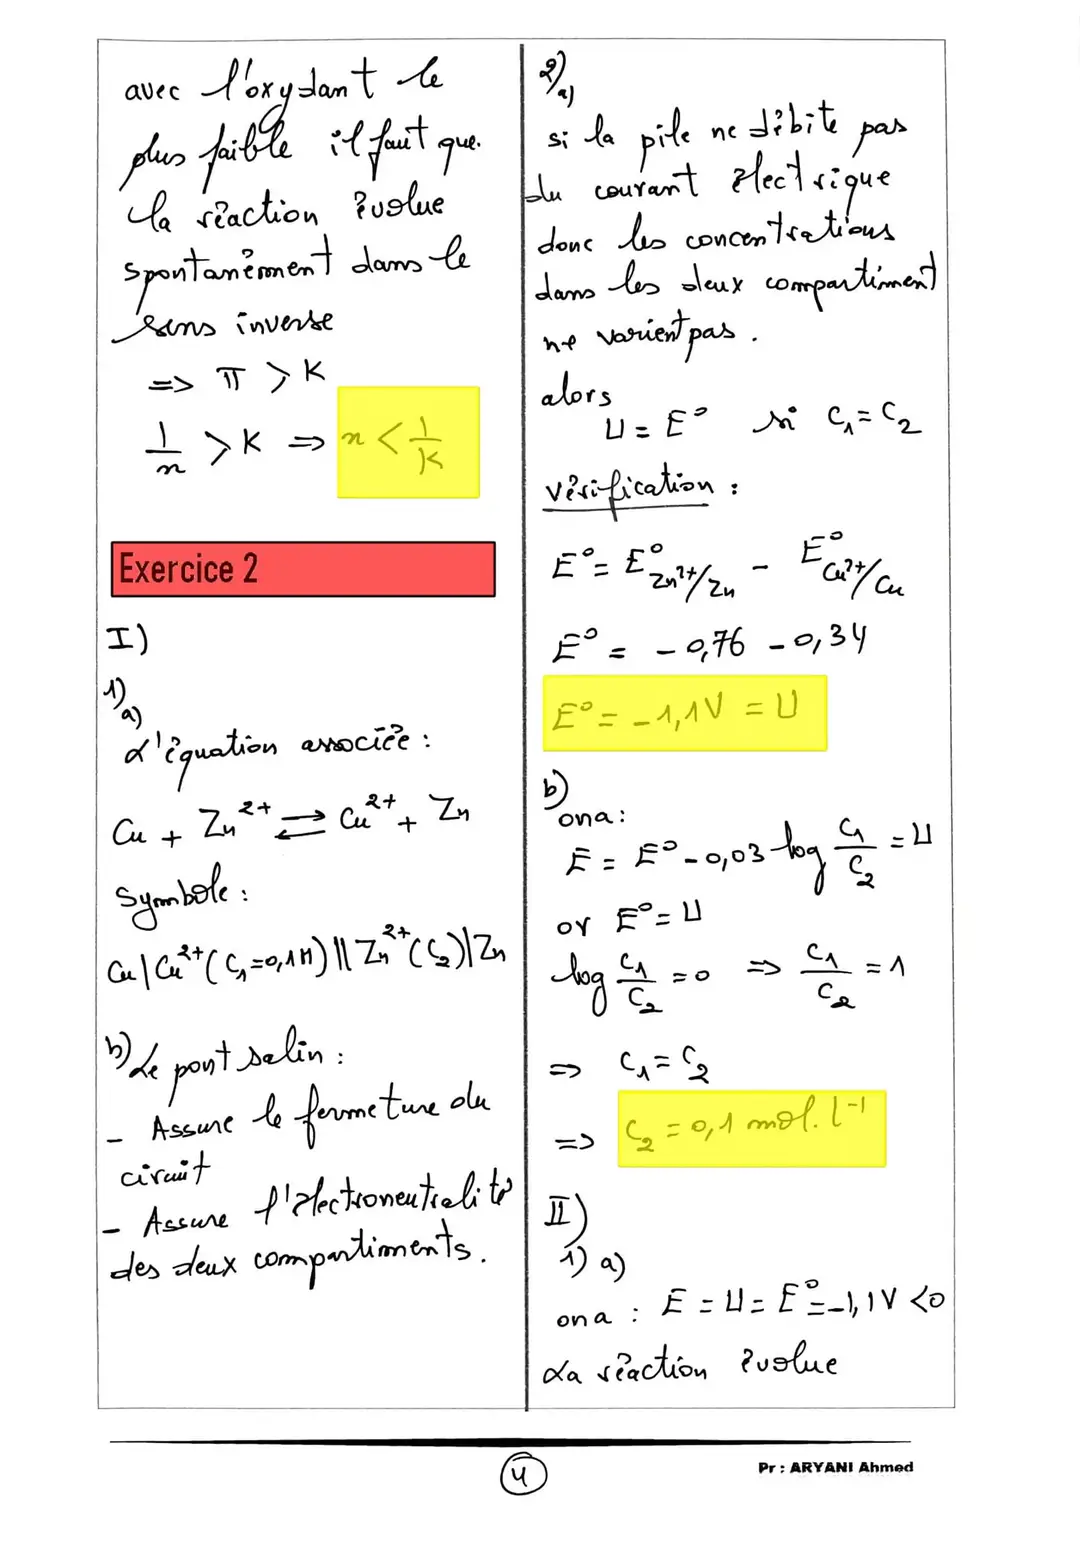 avec l'oxydant le
plus faible il faut que.
la réaction évolue
spontanément dans le
sens inverse
=> π > K
1/n > K => n < 1/K
Exercice 2
I)
1)
a)
L'équation associée :
Cu + Zn²⁺ ⇌ Cu²⁺ + Zn
Symbole :
Cu | Cu²⁺ (C₁=0,1M) || Zn²⁺ (C₂) | Zn
b) Le pont salin :
- Assure le fermeture du
circuit
- Assure l'électroneutralité
des deux compartiments.
2)
a)
si la pile ne débite pas
du courant électrique
donc les concentrations
dans les deux compartiment
ne varient pas .
alors
U = E° si C₁ = C₂
vérification :
E° = E°Zn²⁺/Zn - E°Cu²⁺/Cu
E° = - 0,76 - 0,34
E° = - 1,1V = U
b)
ona :
E = E° - 0,03 log C₁/C₂ = U
or E° = U
log C₁/C₂ = 0 => C₁/C₂ = 1
=> C₁ = C₂
=> C₂ = 0,1 mol. l⁻¹
II)
1) a)
ona : E = U = E° = -1,1V < 0
La réaction évolue
4
Pr : ARYANI Ahmed